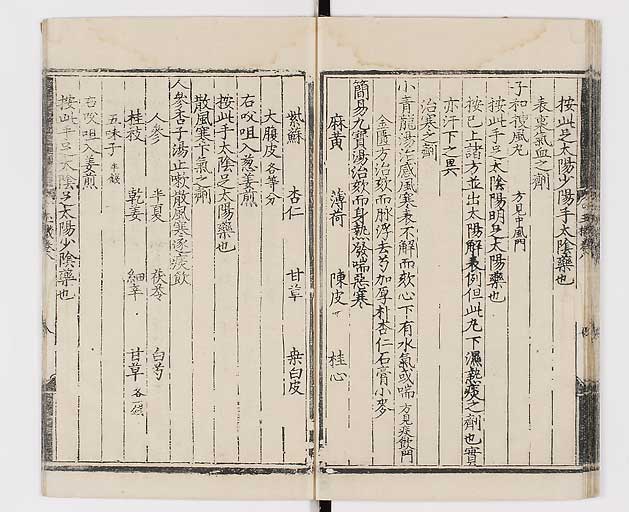 按此足太陽少陽手太陰藥也
表裏氣血之劑
子和搜風丸 方見中風門
按此手足太陰陽明足太陽藥也
按已上諸方並出太陽解表例但此丸下濕熱痰之劑也實
亦汗下之異
治寒之劑
小青龍湯治感風寒表不解而欬心下有水氣或喘 方見痰飲門
金匱方治欬而脉浮去芍加厚朴杏仁石膏小麥
簡易九寶湯治欬而身熱發喘惡寒
麻黃 薄荷 陳皮 桂心
紫蘇 杏仁 甘草 桑白皮
大腹皮 各等分
右㕮咀入葱姜煎
按此手太陰足太陽藥也
散風寒下氣之劑
人參杏子湯止嗽散風寒逐痰飲
人參 半夏 茯苓 白芍
桂枝 乾姜 細辛 甘草 各
五味子
右㕮咀入姜煎
按此手足太陰足太陽少陰藥也